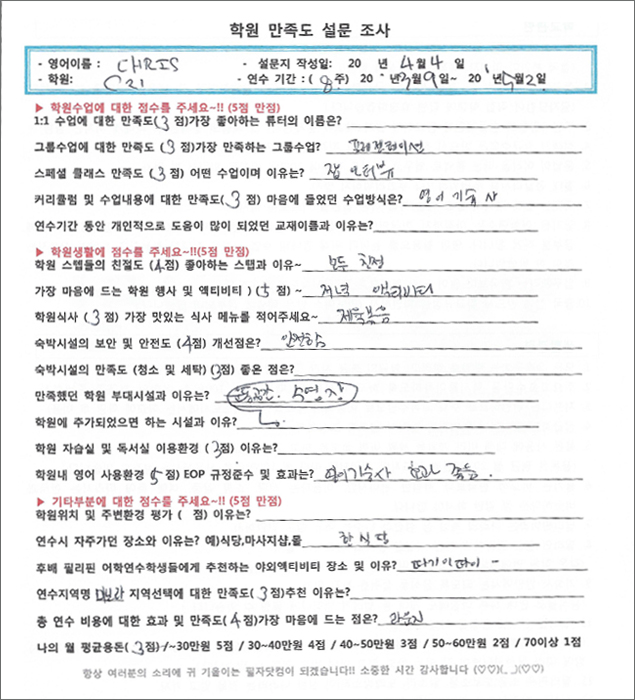 학원 만족도 설문 조사
- 영어이름 : CHRIS - 설문지 작성일: 20 년 4월 4 일
- 학원: C21 - 연수 기간 : ( 8 주) 20 ' 년 3월 9일~ 20 ' 5월 2일
▶ 학원수업에 대한 점수를 주세요~!! (5점 만점)
1:1 수업에 대한 만족도( 3 점)가장 좋아하는 튜터의 이름은?
그룹수업에 대한 만족도 ( 3 점)가장 만족하는 그룹수업? 프레젠테이션
스페셜 클래스 만족도 ( 3 점) 어떤 수업이며 이유는? 잡 인터뷰
커리큘럼 및 수업내용에 대한 만족도( 3 점) 마음에 들었던 수업방식은? 영어 기숙사
연수기간 동안 개인적으로 도움이 많이 되었던 교재이름과 이유는?
▶ 학원생활에 점수를 주세요~!!(5점 만점)
학원 스텝들의 친절도 (4점) 좋아하는 스탭과 이유~ 모두 친절
가장 마음에 드는 학원 행사 및 액티비티 ) (5 점) ~ 저녁 액티비티
학원식사 ( 3 점) 가장 맛있는 식사 메뉴를 적어주세요~ 제육볶음
숙박시설의 보안 및 안전도 ( 4점) 개선점은? 안전함
숙박시설의 만족도 (청소 및 세탁) (3점) 좋은 점은?
만족했던 학원 부대시설과 이유는? 운동공간. 수영장
학원에 추가되었으면 하는 시설과 이유?
학원 자습실 및 독서실 이용환경 ( 3점) 이유는?
학원내 영어 사용환경 ( 5 점) EOP 규정준수 및 효과는? 영어기숙사 효과
▶ 기타부분에 대한 점수를 주세요~!! (5점 만점)
학원위치 및 주변환경 평가 ( 점) 이유는?
연수시 자주가던 장소와 이유는? 예)식당,마사지샵,몰 한식당
후배 필리핀 어학연수학생들에게 추천하는 야외액티비티 장소 및 이유?
연수지역명 지역선택에 대한 만족도( 3 점)추천 이유는?
총 연수 비용에 대한 효과 및 만족도( 4 점)가장 마음에 드는 점은?
나의 월 평균용돈( 3 점) /~30만원 5점 / 30~40만원 4점 / 40~50만원 3점 / 50~60만원 2점 / 70이상 1점
항상 여러분의 소리에 귀 기울이는 필자닷컴이 되겠습니다!! 소중한 시간 감사합니다 (♡♡)(_ _)(♡♡)